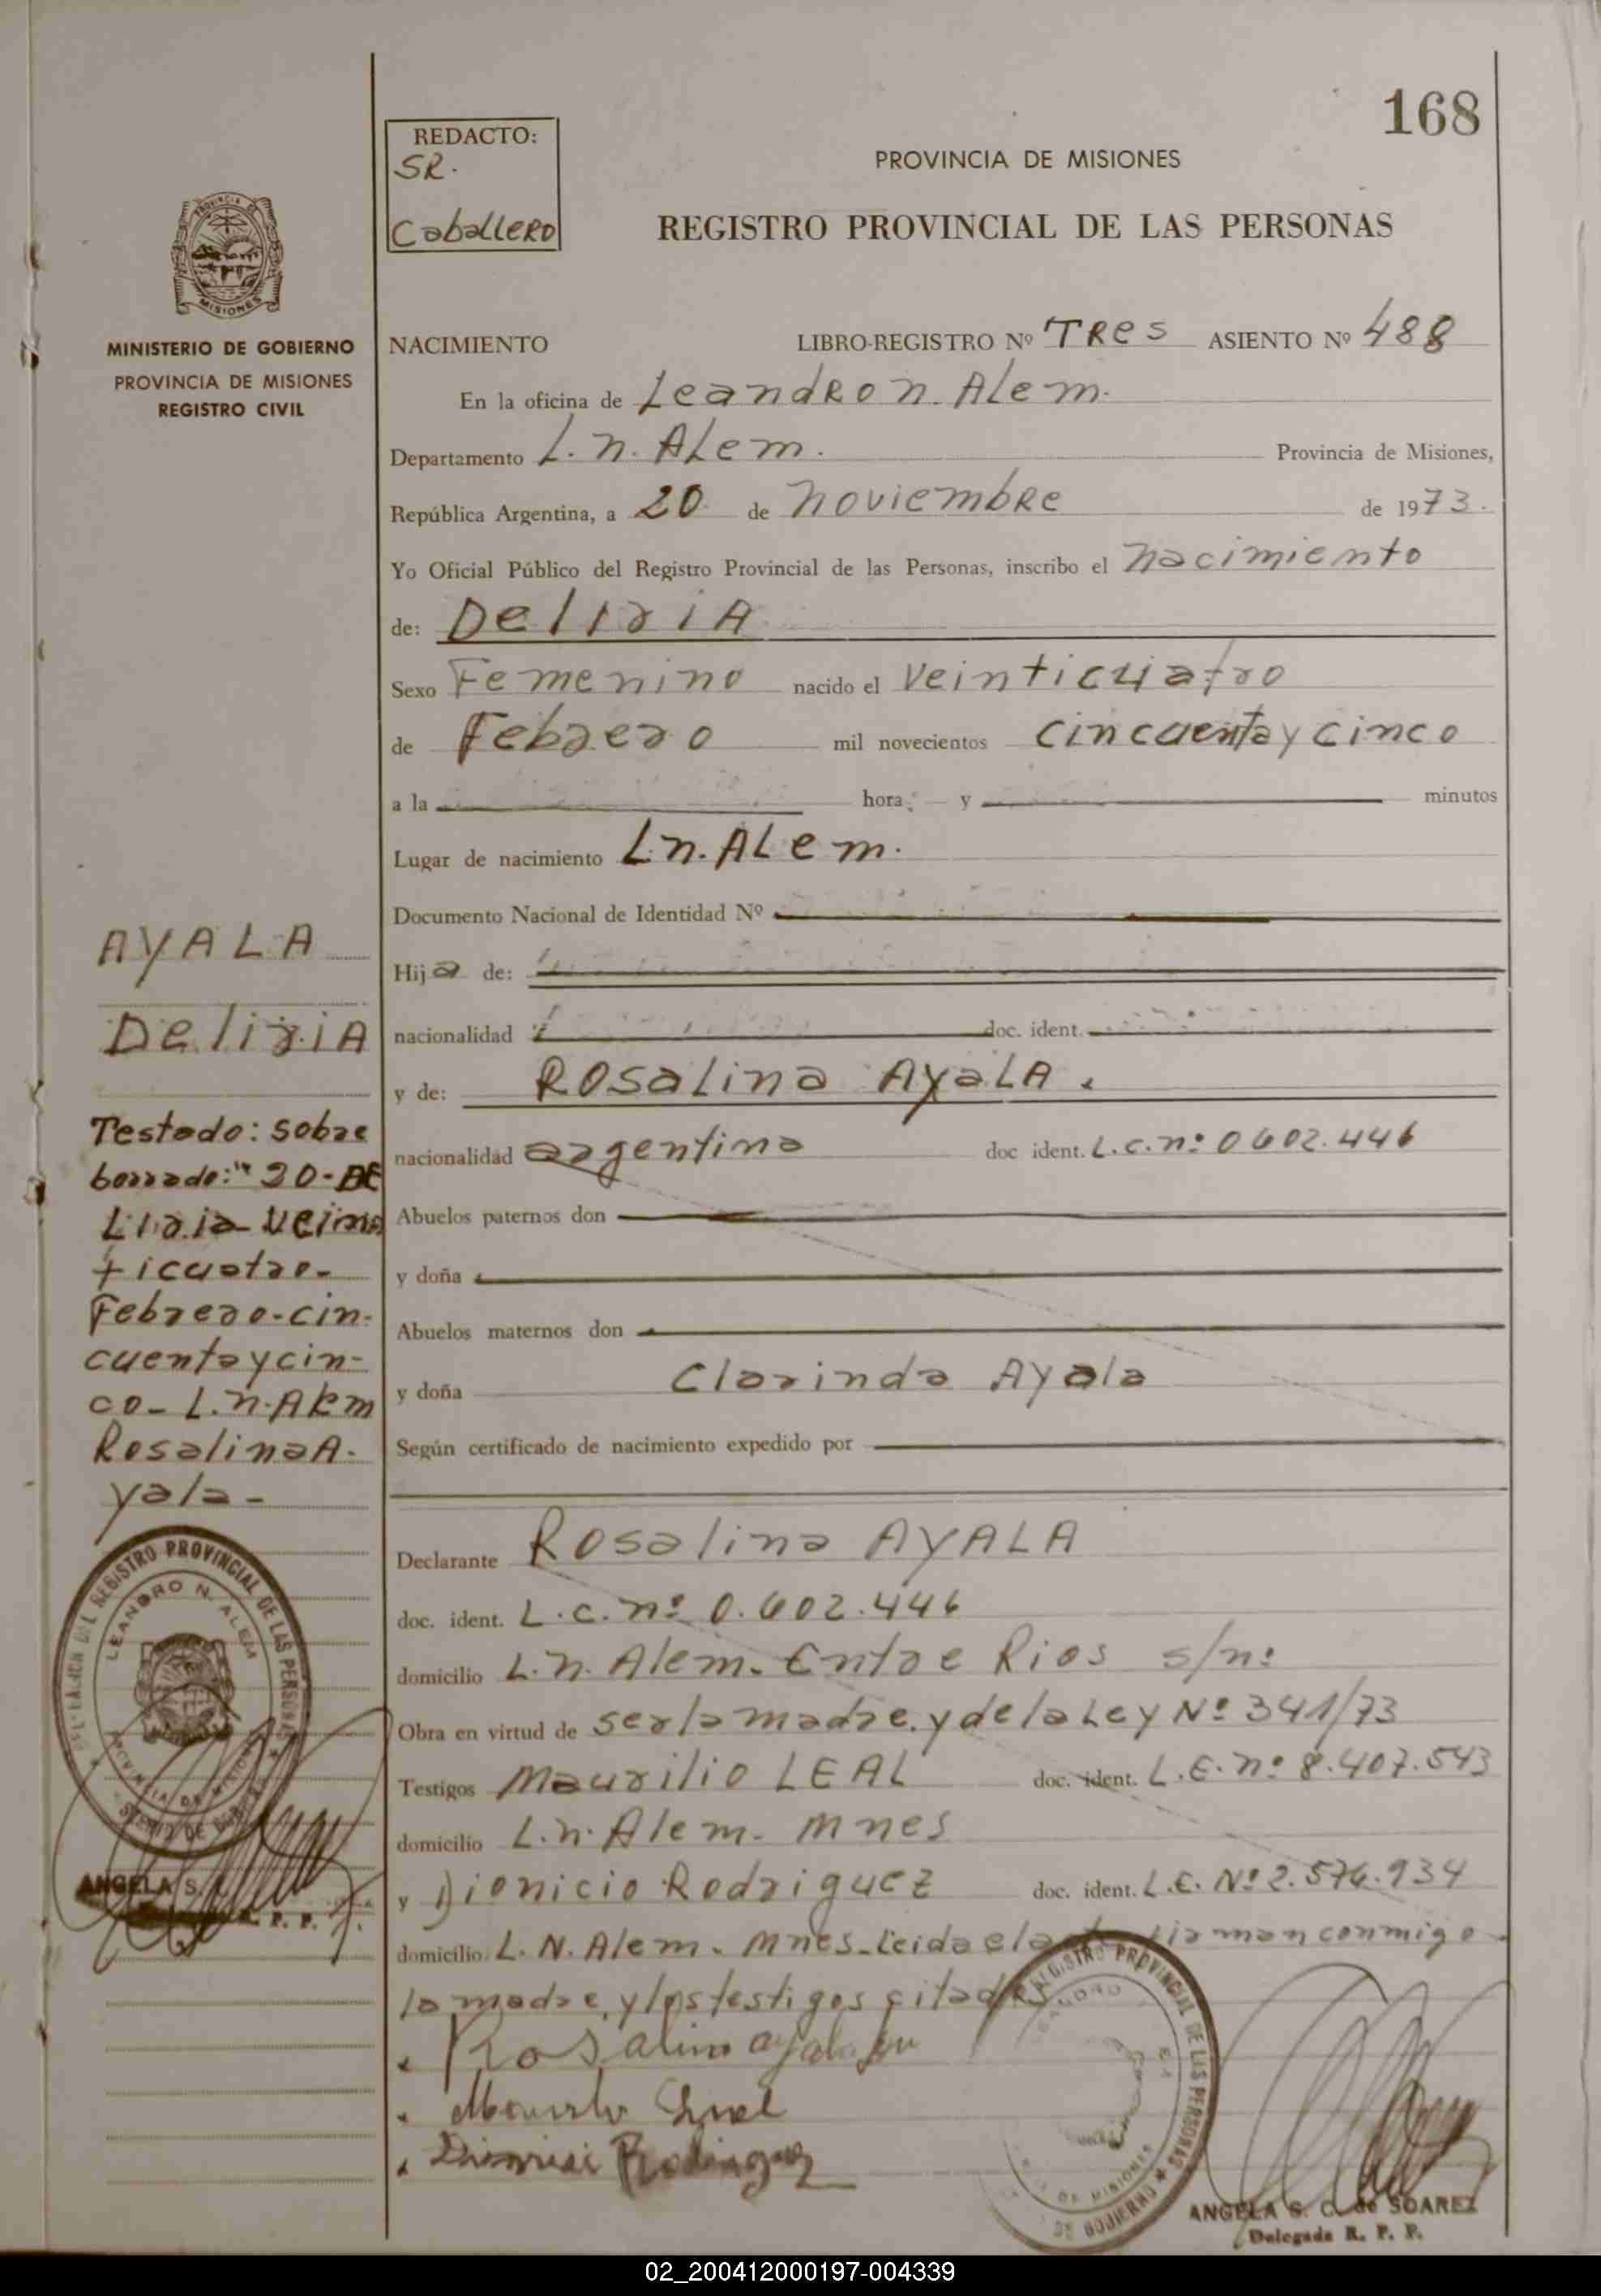 168
REDACTO:
SR.
Caballero
PROVINCIA DE MISIONES
REGISTRO PROVINCIAL DE LAS PERSONAS
MISIONES
MINISTERIO DE GOBIERNO
PROVINCIA DE MISIONES
REGISTRO CIVIL
NACIMIENTO LIBRO-REGISTRO Nº Tres ASIENTO Nº 488
En la oficina de Leandro n. Alem.
Departamento L. n. Alem. Provincia de Misiones,
República Argentina, a 20 de noviembre de 1973.
Yo Oficial Público del Registro Provincial de las Personas, inscribo el nacimiento
de: DeliriA
Sexo Femenino nacido el veinticuatro
de Febrero mil novecientos cincuenta y cinco
a la hora y minutos
Lugar de nacimiento L.n. ALem.
Documento Nacional de Identidad Nº
Hija de:
nacionalidad doc. ident.
y de: Rosalina AyaLA.
nacionalidad argentina doc ident. L.c.nº 0602.446
Abuelos paternos don
y doña
Abuelos maternos don
y doña Clarinda Ayala
Según certificado de nacimiento expedido por
AYALA
DeliriA
Testado: sobre
borrado: "20-DE
Liria veinn
ticuatro-
Febrero-cin-
cuenta y cin-
co- L.n. Alem
Rosalina A-
yala-
Declarante Rosalina AYALA
doc. ident. L.c. nº 0.602.446
domicilio L.n. Alem. Entre Rios s/nº
Obra en virtud de ser la madre. y de la Ley Nº 341/73
Testigos Maurilio LEAL doc. ident. L.E. nº 8.407.543
domicilio L.n. Alem. Mnes
y Dionicio Rodriguez doc. ident. L.E. Nº 2.576.934
domicilio L. N. Alem. Mnes. Leida el firman conmigo
la madre, y los testigos citados
Rosalina ayala
Dionisio Rodriguez
REGISTRO PROVINCIAL DE LAS PERSONAS
LEANDRO N. ALEM
PROVINCIA DE MISIONES
ANGELA S.
R. P. P.
REGISTRO PROVINCIAL DE LAS PERSONAS
DE MISIONES
DE GOBIERNO
ANGELA S. C. de SOAREZ
Delegada R. P. P.
02_200412000197-004339